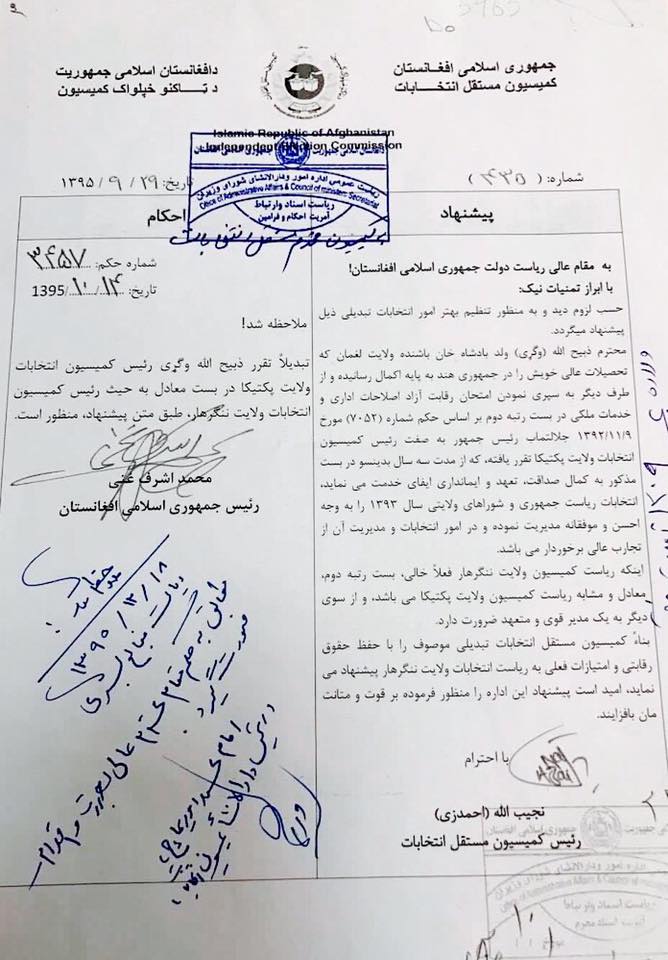 جمهوری اسلامی افغانستان
کمیسیون مستقل انتخابات
دافغانستان اسلامی جمهوریت
د ټاکنو خپلواک کمیسیون
Islamic Republic of Afghanistan
Independent Election Commission
دافغانستان اسلامی جمهوریت
ریاست عمومی اداره امور ودارالانشای شورای وزیران
Office of Administrative Affairs & Council of ministers Secretariat
ریاست اسناد وارتباط
آمریت احکام و فرامین
شماره: (۴۳۵)
تاریخ: ۱۳۹۵/۹/۲۹
پیشنهاد
به مقام عالی ریاست دولت جمهوری اسلامی افغانستان!
با ابراز تمنیات نیک:
حسب لزوم دید و به منظور تنظیم بهتر امور انتخابات تبدیلی ذیل
پیشنهاد میگردد.
محترم ذبیح الله (وگړی) ولد بادشاه خان باشنده ولایت لغمان که
تحصیلات عالی خویش را در جمهوری هند به پایه اکمال رسانیده و از
طرف دیگر به سپری نمودن امتحان رقابت آزاد اصلاحات اداری و
خدمات ملکی در بست رتبه دوم بر اساس حکم شماره (۷۰۵۲) مورخ
۱۳۹۲/۱۱/۹ جلالتماب رئیس جمهور به صفت رئیس کمیسیون
انتخابات ولایت پکتیکا تقرر یافته، که از مدت سه سال بدینسو در بست
مذکور به کمال صداقت، تعهد و ایمانداری ایفای خدمت می نماید،
انتخابات ریاست جمهوری و شوراهای ولایتی سال ۱۳۹۳ را به وجه
احسن و موفقانه مدیریت نموده و در امور انتخابات و مدیریت آن از
تجارب عالی برخوردار می باشد.
اینکه ریاست کمیسیون ولایت ننگرهار فعلاً خالی، بست رتبه دوم،
معادل و مشابه ریاست کمیسیون ولایت پکتیکا می باشد، و از سوی
دیگر به یک مدیر قوی و متعهد ضرورت دارد.
بناً کمیسیون مستقل انتخابات تبدیلی موصوف را با حفظ حقوق
رقابتی و امتیازات فعلی به ریاست انتخابات ولایت ننگرهار پیشنهاد می
نماید، امید است پیشنهاد این اداره را منظور فرموده بر قوت و متانت
مان بافزایند.
با احترام
نجیب الله (احمدزی)
رئیس کمیسیون مستقل انتخابات
احکام
به کمیسیون محترم مستقل انتخابات
شماره حکم: ۳۴۵۷
تاریخ: 1395/۱۰/۱۴
ملاحظه شد!
تبدیلاً تقرر ذبیح الله وگړی رئیس کمیسیون انتخابات
ولایت پکتیکا در بست معادل به حیث رئیس کمیسیون
انتخابات ولایت ننگرهار، طبق متن پیشنهاد، منظور است.
محمد اشرف غنی
رئیس جمهوری اسلامی افغانستان
ریاست منابع بشری
جمهوری اسلامی افغانستان
ریاست اسناد وارتباط